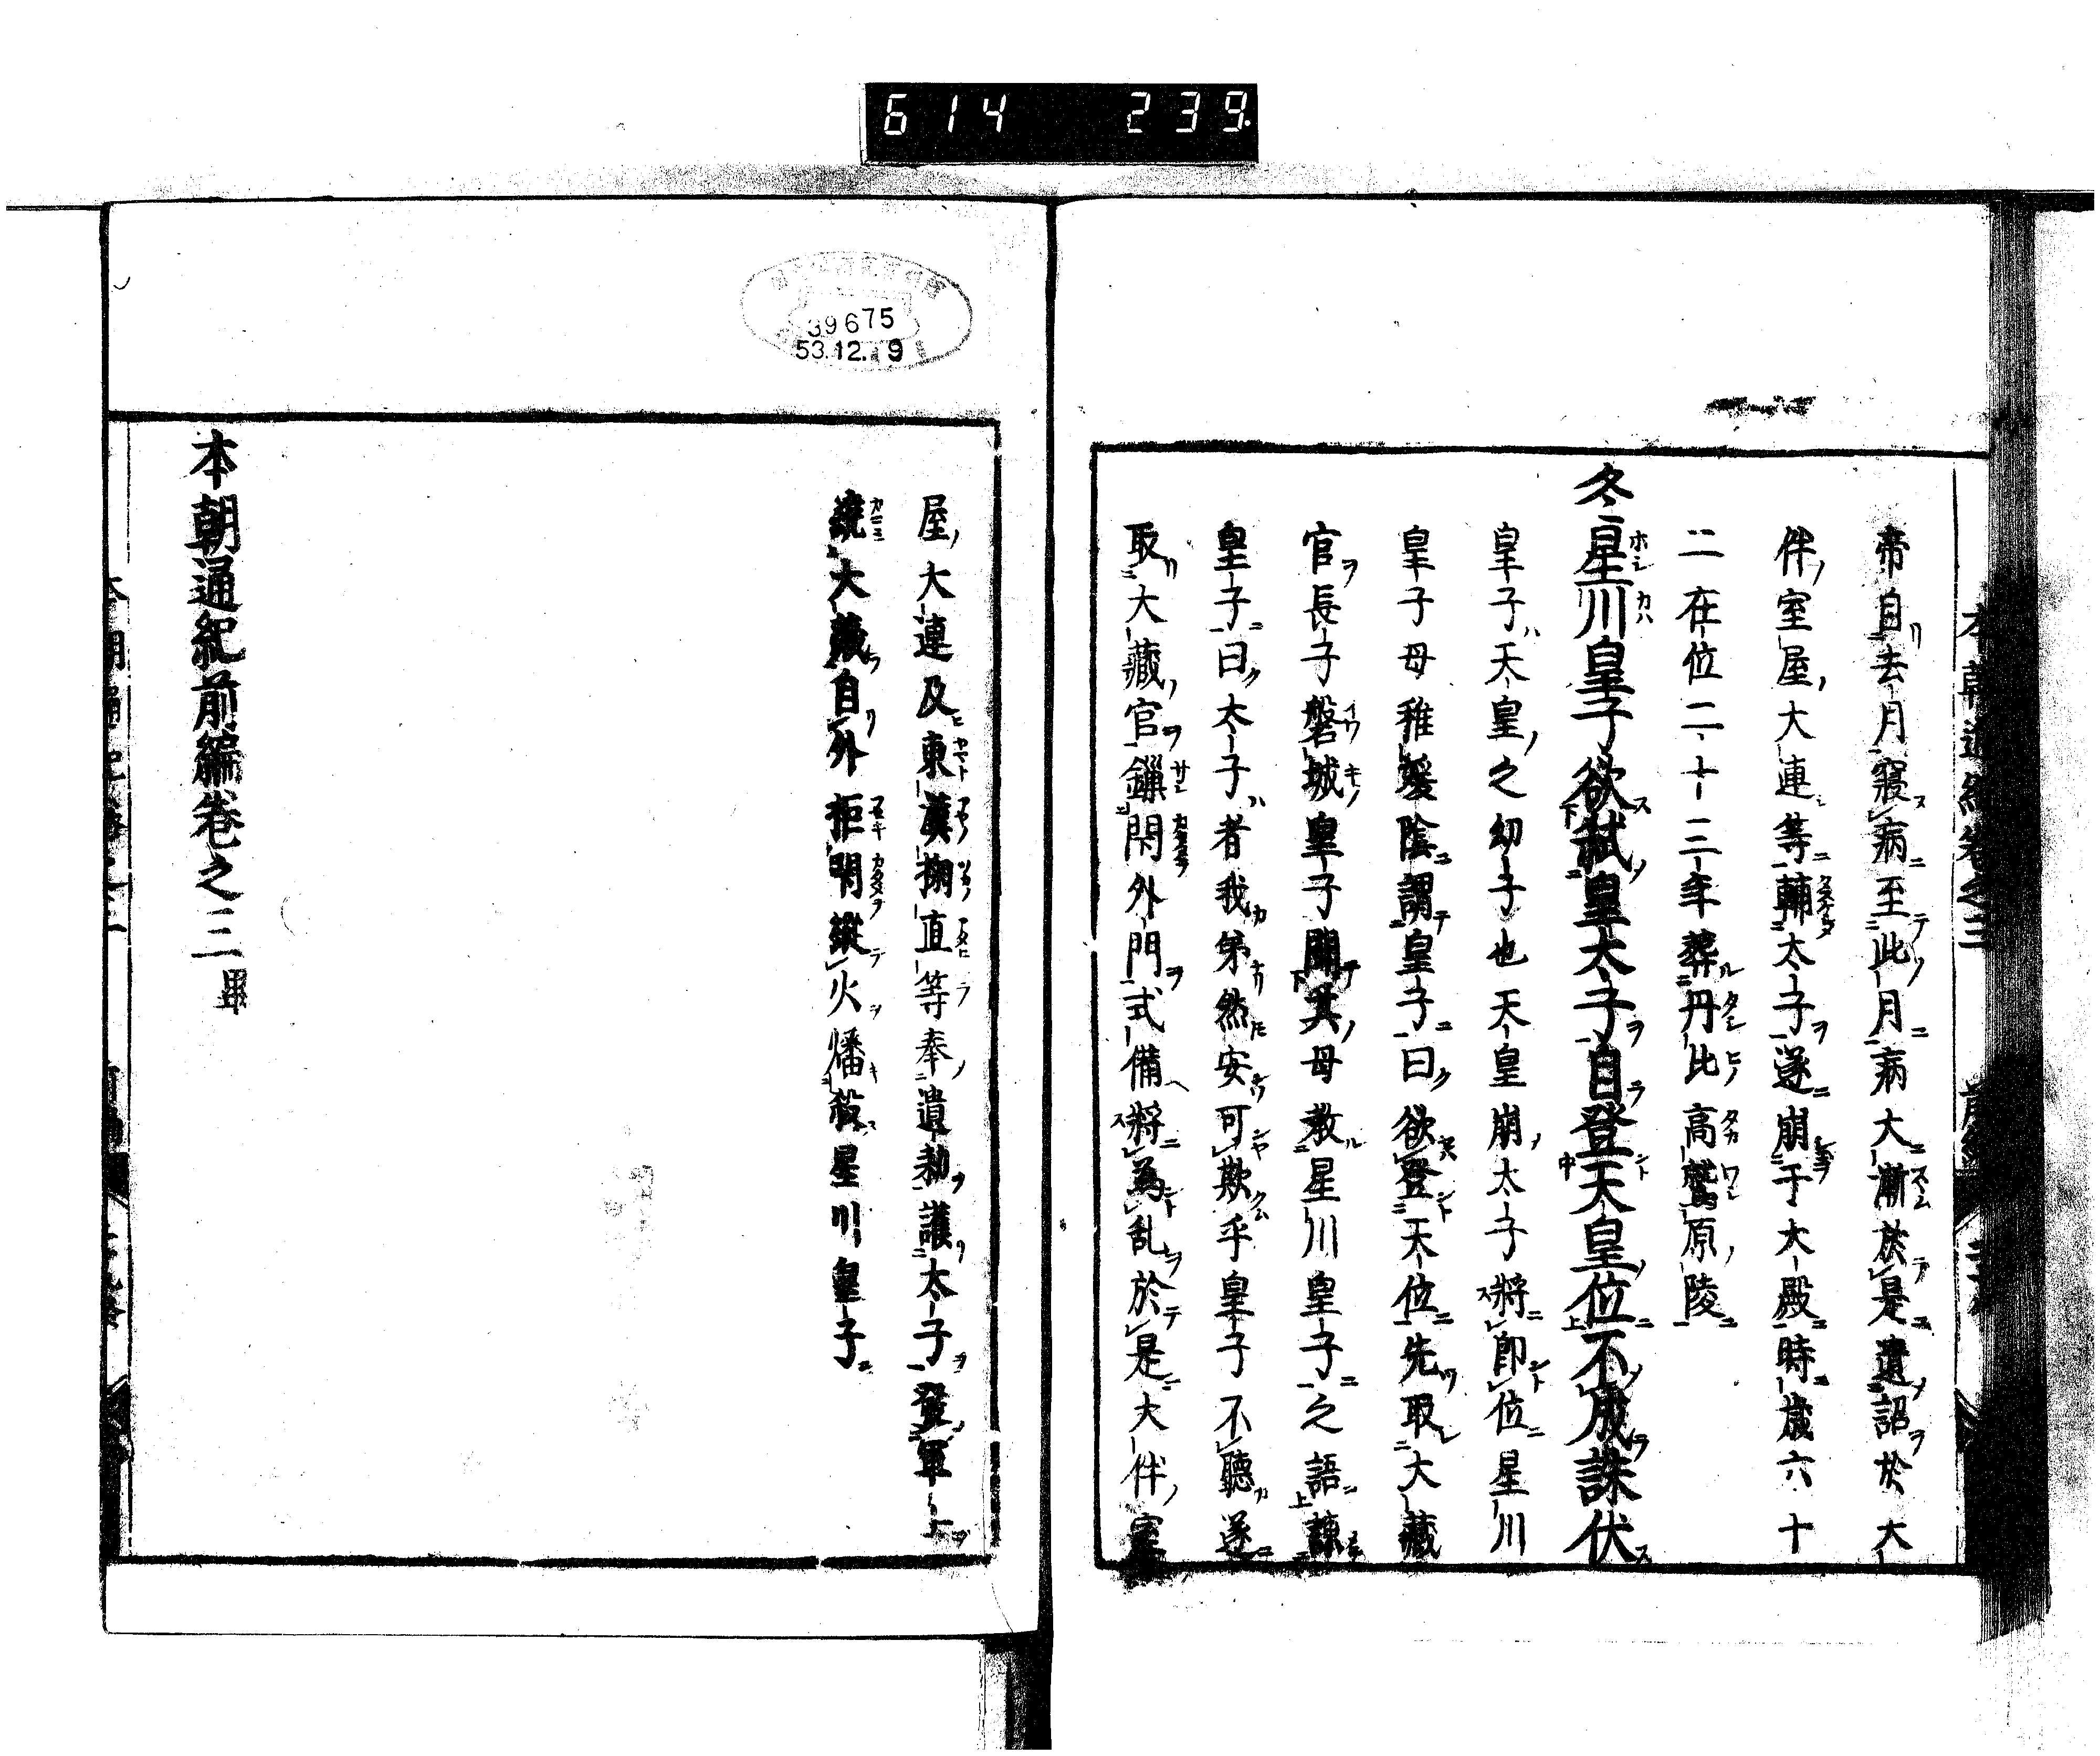 614 239.
帝自去月寢病至此月病大漸於是遺詔於大
伴室屋大連等輔太子遂崩于大殿時歲六十
二在位二十三年葬丹比高鷲原陵
冬星川皇子欲弒皇太子自登天皇位不成誅伏
皇子天皇之幼子也天皇崩太子將即位星川
皇子母稚媛陰謂皇子曰欲登天位先取大藏
官長子磐城皇子聞其母教星川皇子之語諫
皇子曰太子者我弟然安可欺乎皇子不聽遂
取大藏官鏁閇外門式備將為乱於是大伴室
屋大連及東漢掬直等奉遺勅護太子發軍士
繞大藏自外拒閇縱火燔殺星川皇子
本朝通紀前編卷之三畢
39675
53.12.9